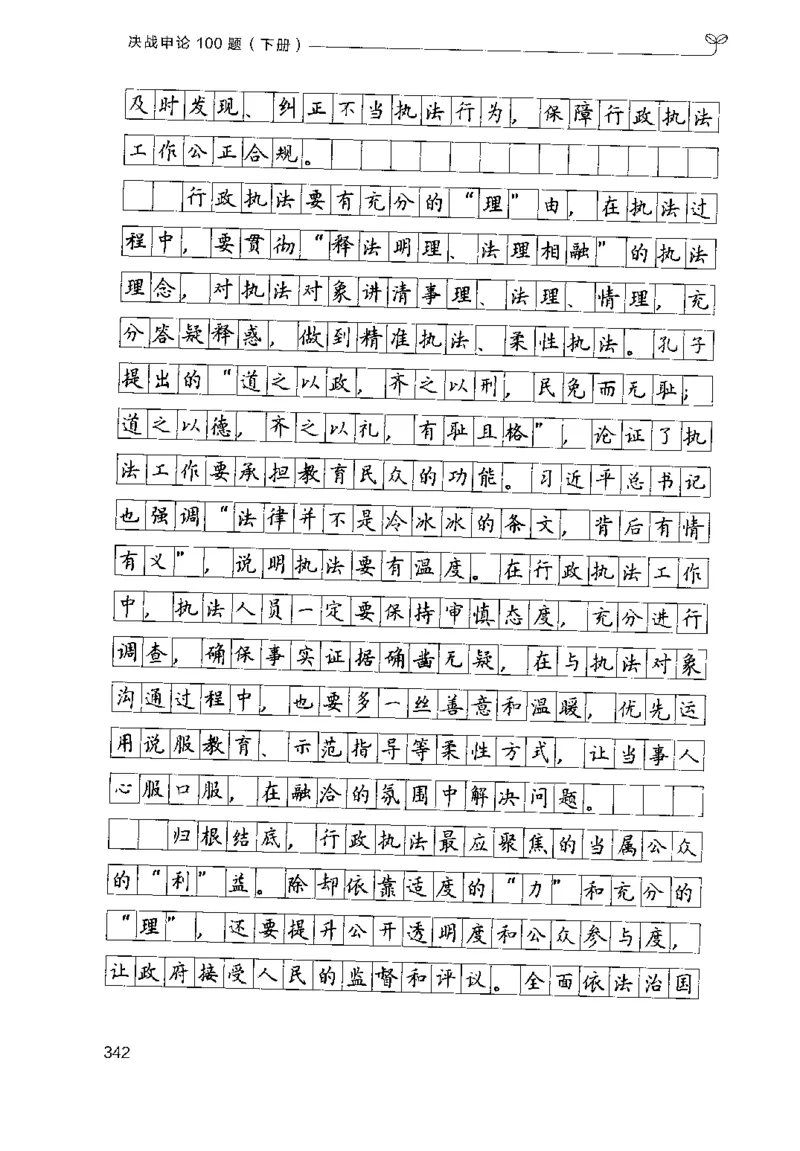 决战申论 100 题（下册）
及时发现、纠正不当执法行为，保障行政执法
工作公正合规。
行政执法要有充分的“理”由，在执法过
程中，要贯彻“释法明理、法理相融”的执法
理念，对执法对象讲清事理、法理、情理，充
分答疑释惑，做到精准执法、柔性执法。孔子
提出的“道之以政，齐之以刑，民免而无耻；
道之以德，齐之以礼，有耻且格”，论证了执
法工作要承担教育民众的功能。习近平总书记
也强调“法律并不是冷冰冰的条文，背后有情
有义”，说明执法要有温度。在行政执法工作
中，执法人员一定要保持审慎态度，充分进行
调查，确保事实证据确凿无疑，在与执法对象
沟通过程中，也要多一丝善意和温暖，优先运
用说服教育、示范指导等柔性方式，让当事人
心服口服，在融洽的氛围中解决问题。
归根结底，行政执法最应聚焦的当属公众
的“利”益。除却依靠适度的“力”和充分的
“理”，还要提升公开透明度和公众参与度，
让政府接受人民的监督和评议。全面依法治国
342